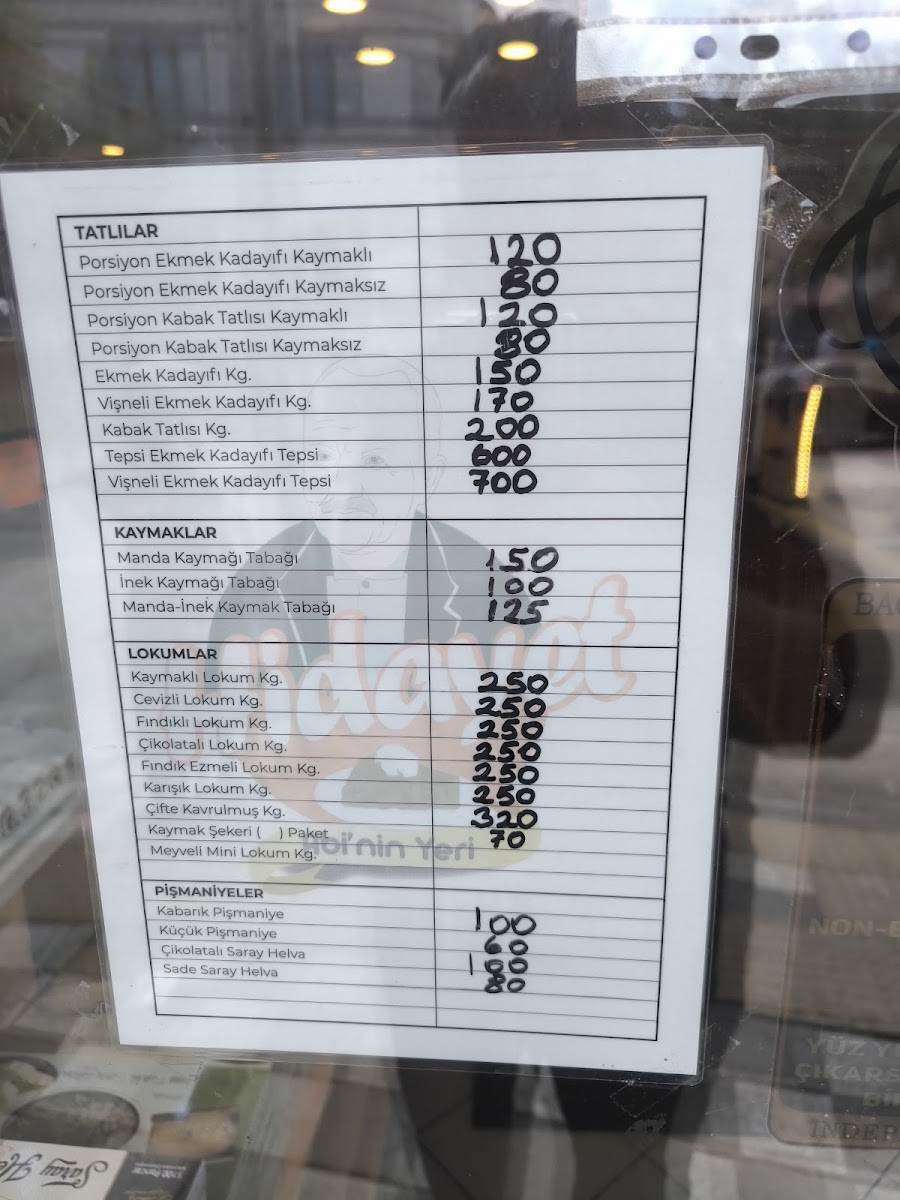 TATLILAR
Porsiyon Ekmek Kadayıfı Kaymaklı 120
Porsiyon Ekmek Kadayıfı Kaymaksız 80
Porsiyon Kabak Tatlısı Kaymaklı 120
Porsiyon Kabak Tatlısı Kaymaksız 80
Ekmek Kadayıfı Kg. 150
Vişneli Ekmek Kadayıfı Kg. 170
Kabak Tatlısı Kg. 200
Tepsi Ekmek Kadayıfı Tepsi 600
Vişneli Ekmek Kadayıfı Tepsi 700
KAYMAKLAR
Manda Kaymağı Tabağı 150
İnek Kaymağı Tabağı 100
Manda-İnek Kaymak Tabağı 125
LOKUMLAR
Kaymaklı Lokum Kg. 250
Cevizli Lokum Kg. 250
Fındıklı Lokum Kg. 250
Çikolatalı Lokum Kg. 250
Fındık Ezmeli Lokum Kg. 250
Karışık Lokum Kg. 250
Çifte Kavrulmuş Kg. 320
Kaymak Şekeri ( ) Paket 70
Meyveli Mini Lokum Kg.
PİŞMANİYELER
Kabarık Pişmaniye 100
Küçük Pişmaniye 60
Çikolatalı Saray Helva 100
Sade Saray Helva 80
Hidayet
Abi'nin Yeri
Saray
NON-